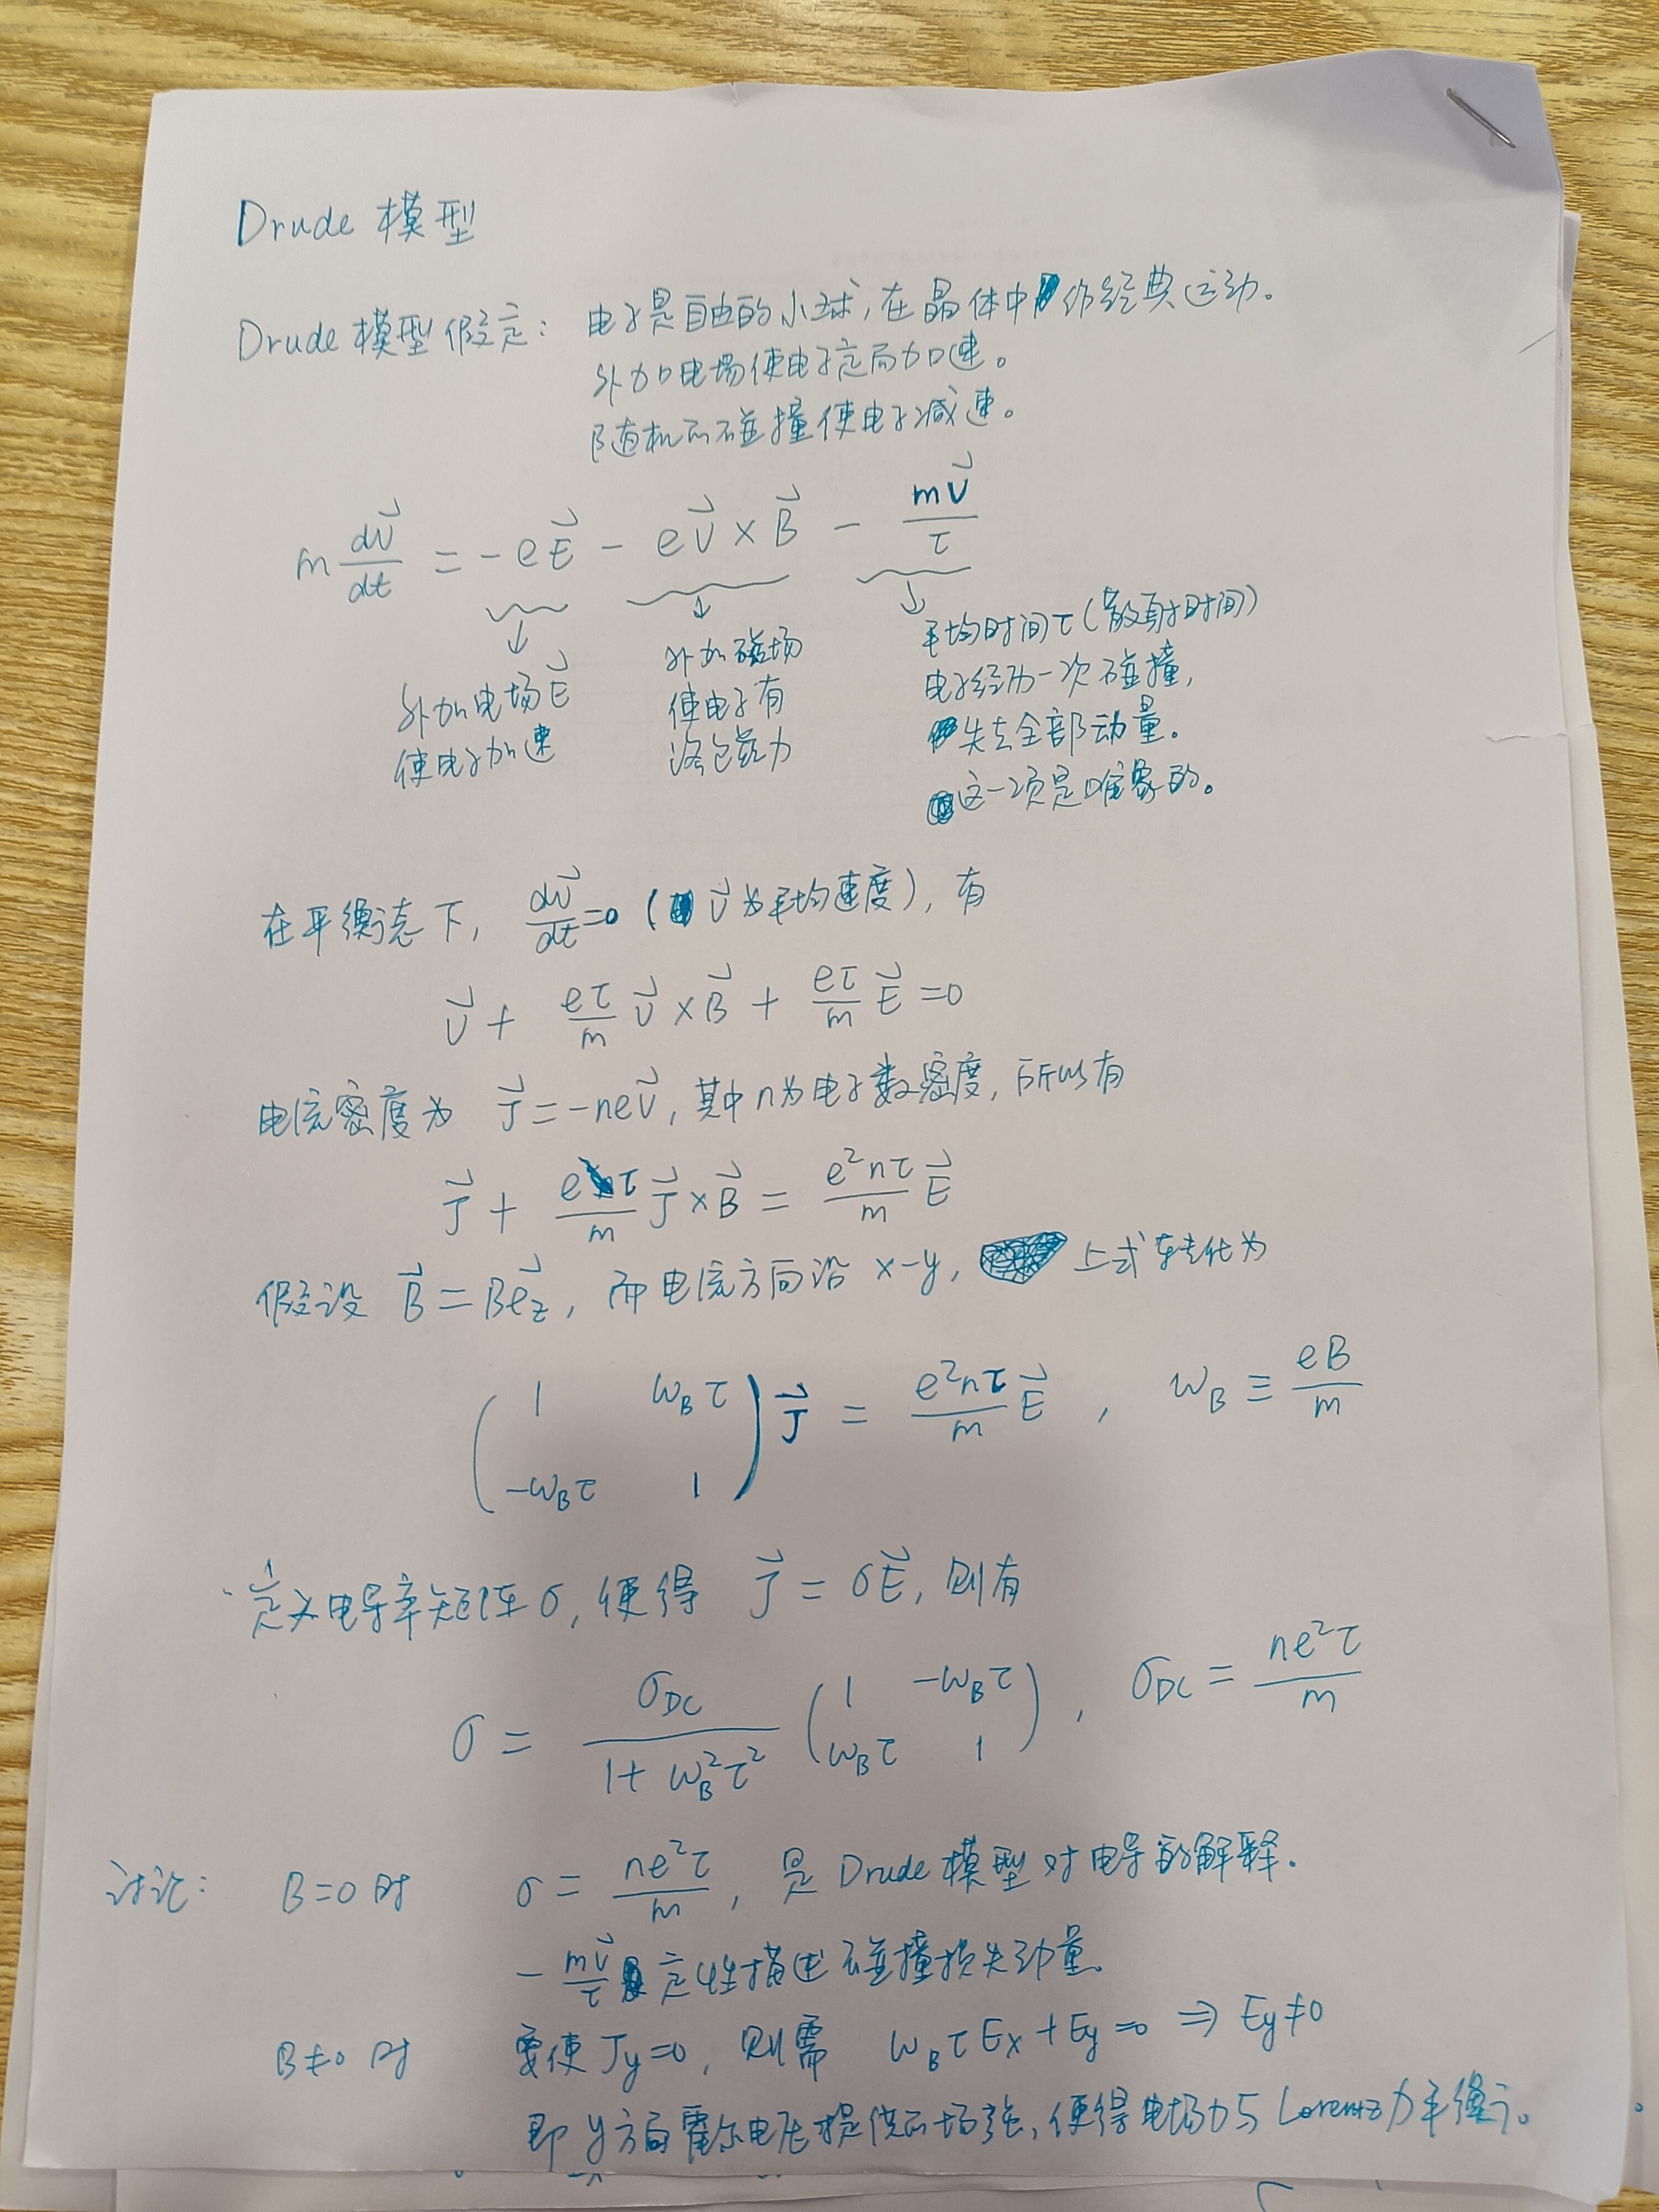 Drude 模型
Drude 模型假定: 电子是自由的小球,在晶体中作经典运动。
外加电场使电子定向加速。
随机的碰撞使电子减速。
m dv⃗/dt = -eE⃗ - ev⃗×B⃗ - mv⃗/τ
外加电场E⃗
使电子加速
外加磁场
使电子有
洛仑兹力
平均时间τ(散射时间)
电子经历一次碰撞,
失去全部动量。
这一项是唯象的。
在平衡态下, dv⃗/dt=0 (v⃗为平均速度), 有
v⃗ + eτ/m v⃗×B⃗ + eτ/m E⃗ =0
电流密度为 J⃗ = -nev⃗, 其中n为电子数密度, 所以有
J⃗ + eτ/m J⃗×B⃗ = e²nτ/m E⃗
假设 B⃗ = Be⃗z, 而电流方向沿 x-y, 上式转化为
( 1 ωBτ
-ωBτ 1 ) J⃗ = e²nτ/m E⃗ , ωB ≡ eB/m
定义电导率矩阵σ, 使得 J⃗ = σE⃗, 则有
σ = σDC/(1+ωB²τ²) ( 1 -ωBτ
ωBτ 1 ) , σDC = ne²τ/m
讨论: B=0 时 σ = ne²τ/m , 是 Drude 模型对电导的解释.
- mv⃗/τ 定性描述碰撞损失动量.
B≠0 时 要使 Jy=0, 则需 ωBτEx+Ey=0 ⇒ Ey≠0
即 y方向霍尔电压提供的场强, 使得电场力与 Lorentz 力平衡。